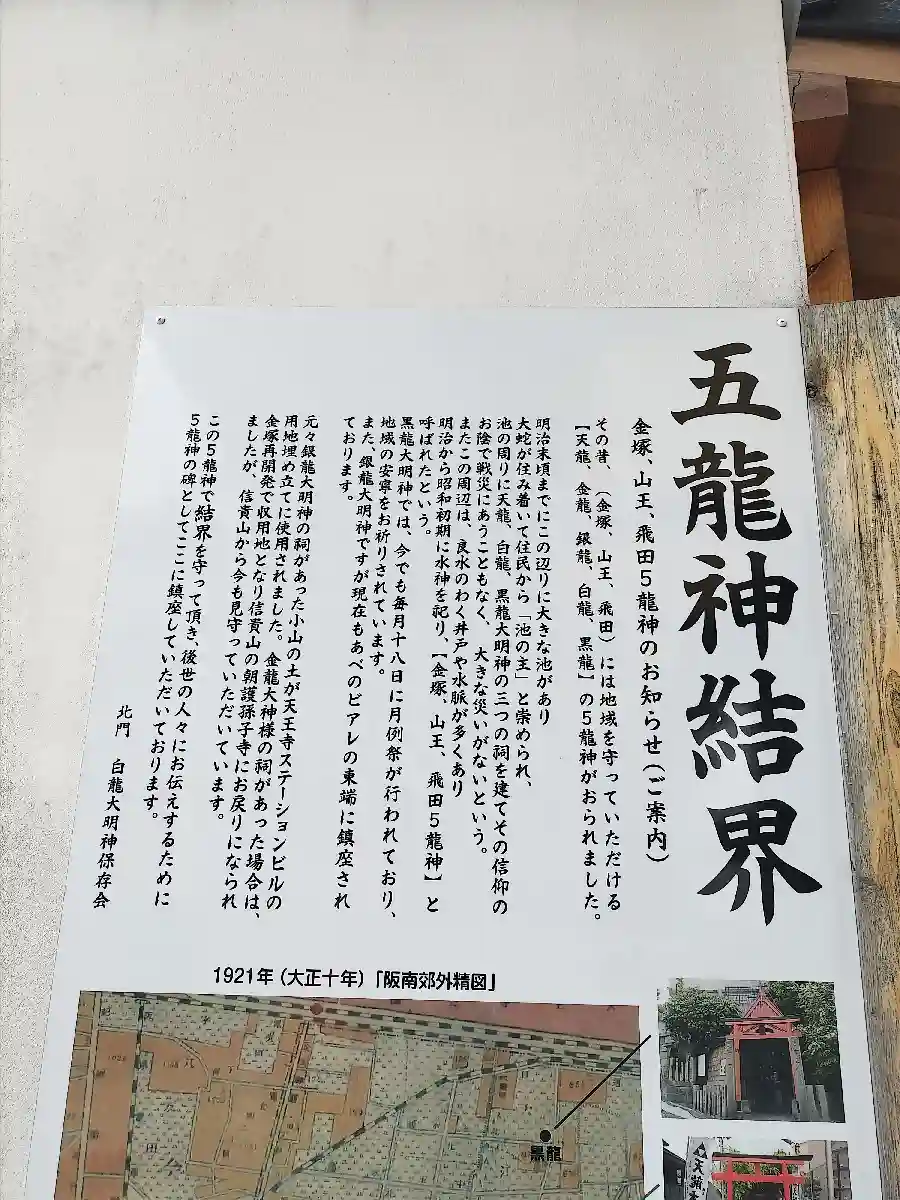 五龍神結界
金塚、山王、飛田5龍神のお知らせ(ご案内)
その昔、(金塚、山王、飛田)には地域を守っていただける
【天龍、金龍、銀龍、白龍、黒龍】の5龍神がおられました。
明治末頃までにこの辺りに大きな池があり
大蛇が住み着いて住民から「池の主」と崇められ、
池の周りに天龍、白龍、黒龍大明神の三つの祠を建てその信仰の
お陰で戦災にあうこともなく、大きな災いがないという。
またこの周辺は、良水のわく井戸や水脈が多くあり
明治から昭和初期に水神を祀り、【金塚、山王、飛田5龍神】と
呼ばれたという。
黒龍大明神では、今でも毎月十八日に月例祭が行われており、
地域の安寧をお祈りされています。
また、銀龍大明神ですが現在もあべのビアレの東端に鎮座され
ております。
元々銀龍大明神の祠があった小山の土が天王寺ステーションビルの
用地埋め立てに使用されました。金龍大神様の祠があった場合は、
金塚再開発で収用地となり信貴山の朝護孫子寺にお戻りになられ
ましたが、信貴山から今も見守っていただいています。
この5龍神で結界を守って頂き、後世の人々にお伝えするために
5龍神の碑としてここに鎮座していただいております。
北門 白龍大明神保存会
1921年(大正十年)「阪南郊外精図」
黒龍
天龍